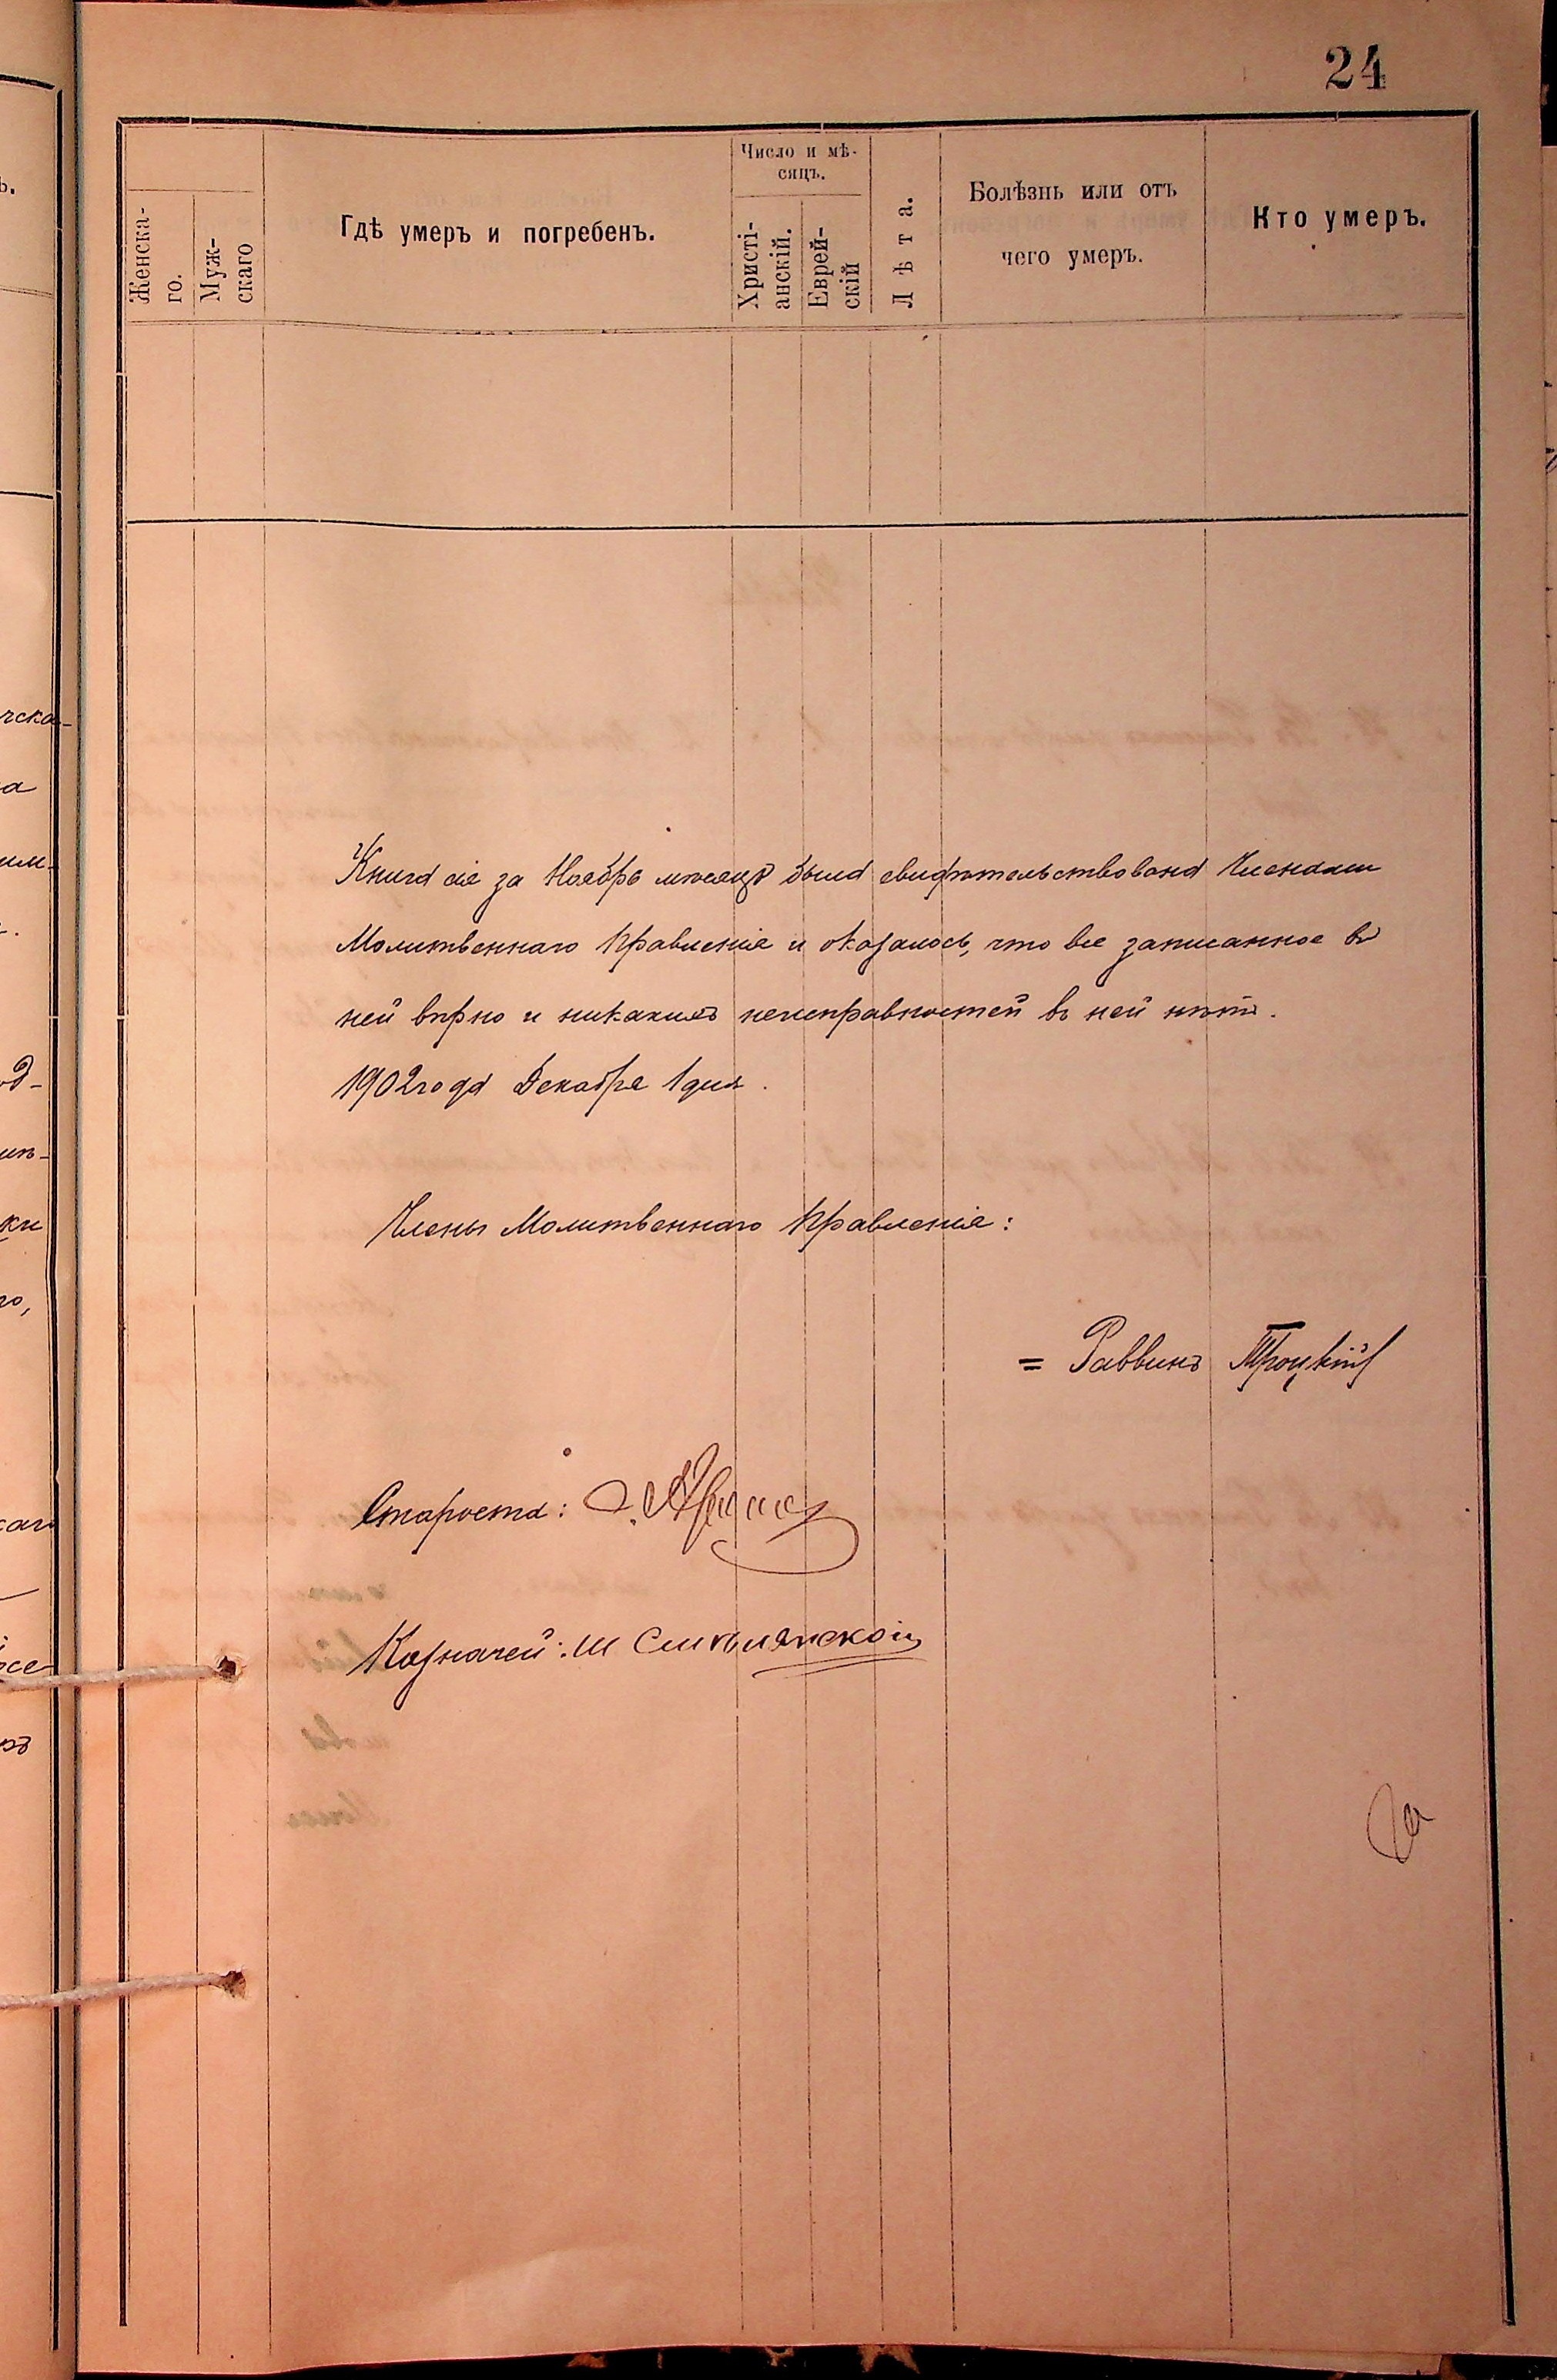 24
Женска-
го.
Муж-
скаго
Гдѣ умеръ и погребенъ.
Число и мѣ-
сяцъ.
Христі-
анскій.
Еврей-
скій
Лѣта.
Болѣзнь или отъ
чего умеръ.
Кто умеръ.
Книга сія за Ноябрь мѣсяцъ была свидѣтельствована Членами
Молитвеннаго Правленія и оказалось, что все записанное въ
ней вѣрно и никакихъ неисправностей въ ней нѣтъ.
1902 года Декабря 1 дня.
Члены Молитвеннаго Правленія:
= Раввинъ Троцкій
Староста:
Казначей: Ш